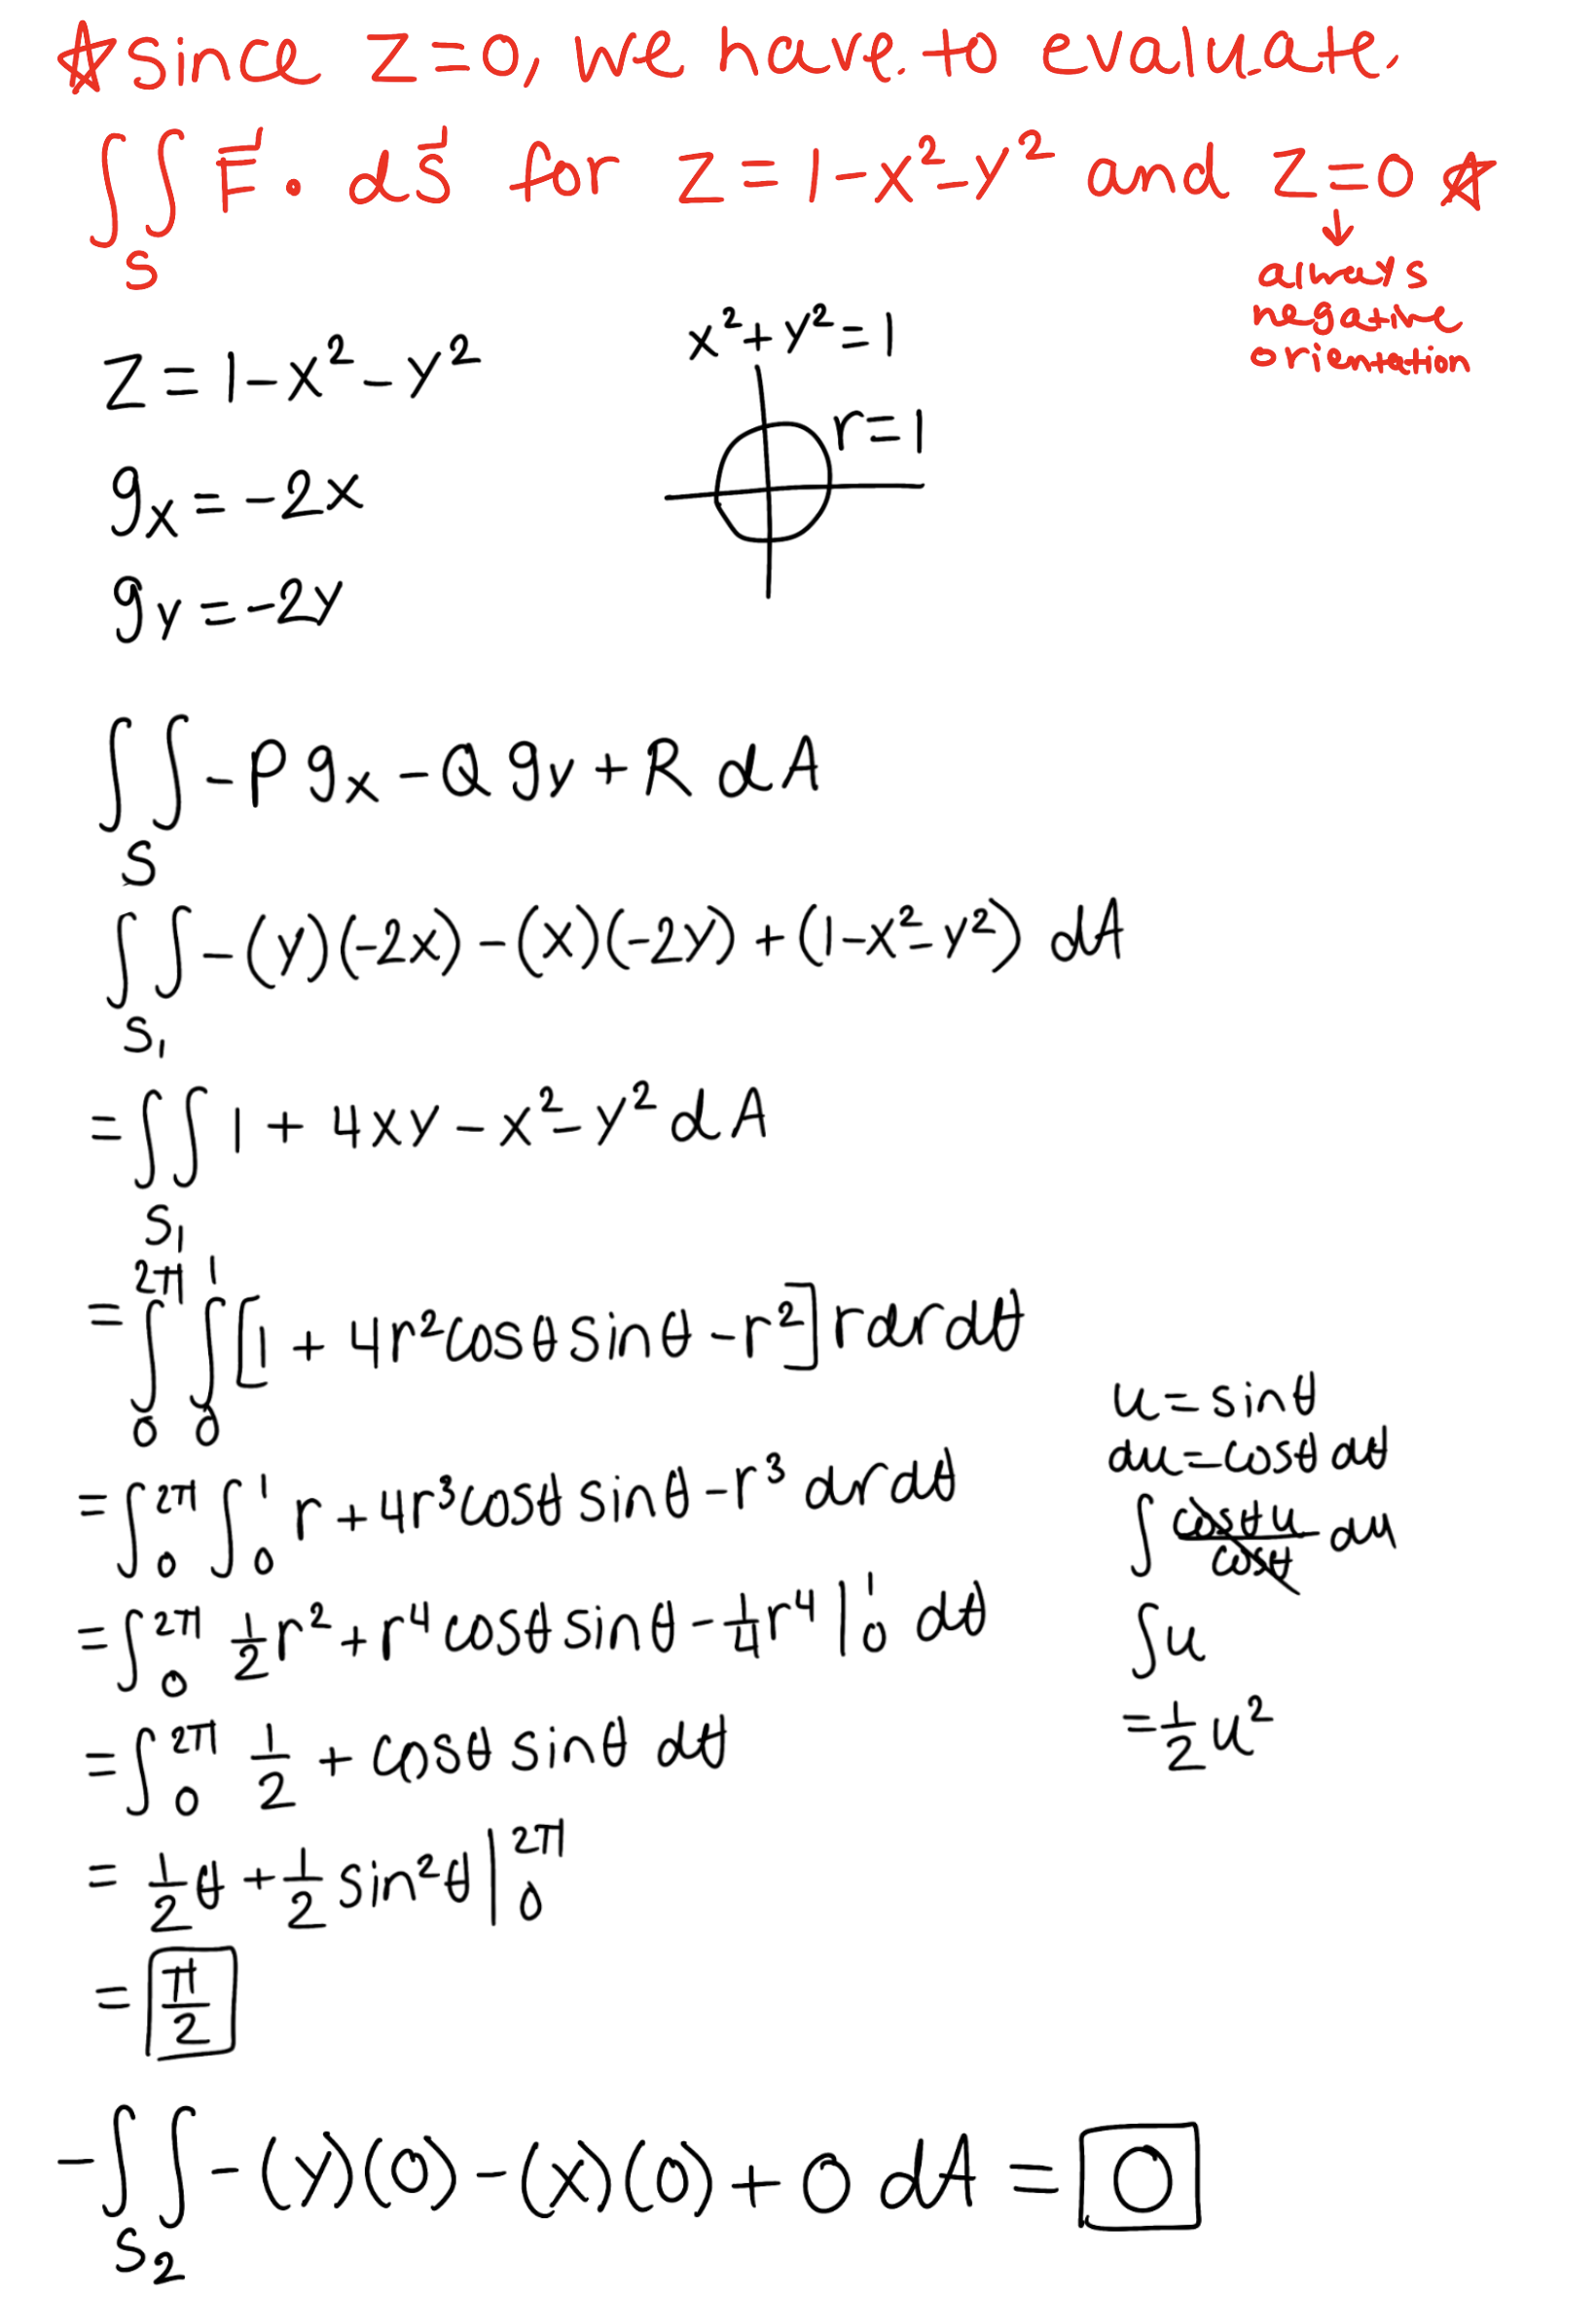 ☆ since z=0, we have to evaluate.
∫∫_S F⃗ · dS⃗ for z = 1-x²-y² and z=0 ☆
↓
always
negative
orientation
z = 1-x²-y²
x²+y²=1
r=1
g_x = -2x
g_y = -2y
∫∫_S -P g_x - Q g_y + R dA
∫∫_S₁ -(y)(-2x) - (x)(-2y) + (1-x²-y²) dA
= ∫∫_S₁ 1 + 4xy - x² - y² dA
= ∫_0^2π ∫_0^1 [1 + 4r²cosθ sinθ - r²] r dr dθ
= ∫_0^2π ∫_0^1 r + 4r³cosθ sinθ - r³ dr dθ
= ∫_0^2π 1/2 r² + r⁴ cosθ sinθ - 1/4 r⁴ |_0^1 dθ
= ∫_0^2π 1/2 + cosθ sinθ dθ
= 1/2 θ + 1/2 sin²θ |_0^2π
= π/2
u = sinθ
du = cosθ dθ
∫ cosθ u / cosθ du
∫u
= 1/2 u²
-∫∫_S₂ -(y)(0) - (x)(0) + 0 dA = 0